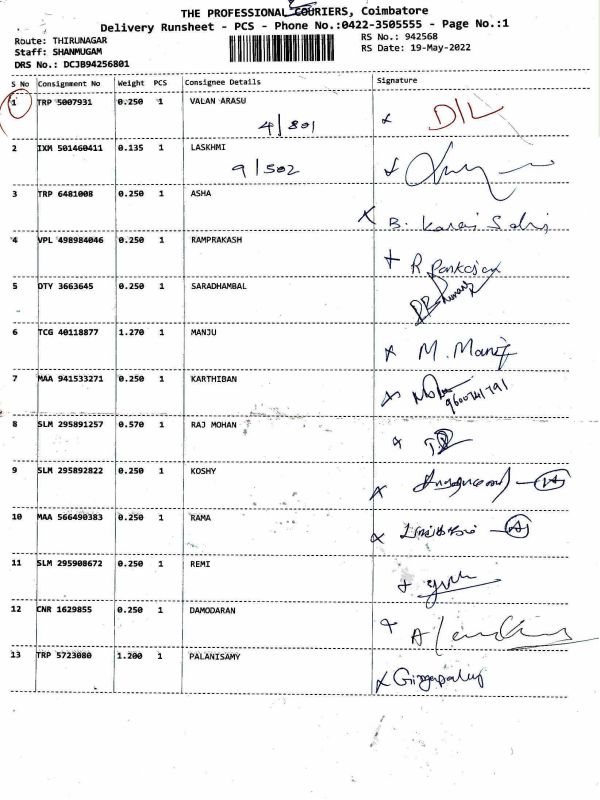 THE PROFESSIONAL COURIERS, Coimbatore
Delivery Runsheet - PCS - Phone No.:0422-3505555 - Page No.:1
Route: THIRUNAGAR
Staff: SHANMUGAM
DRS No.: DCJB94256801
RS No.: 942568
RS Date: 19-May-2022
S No Consignment No Weight PCS Consignee Details Signature
1 TRP 5007931 0.250 1 VALAN ARASU
4/801 D/L
2 IXM 501460411 0.135 1 LASKHMI
9/502
3 TRP 6481008 0.250 1 ASHA
B.
4 VPL 498984046 0.250 1 RAMPRAKASH
R
5 OTY 3663645 0.250 1 SARADHAMBAL
6 TCG 40118877 1.270 1 MANJU
M. Manij
7 MAA 941533271 0.250 1 KARTHIBAN
9600741791
8 SLM 295891257 0.570 1 RAJ MOHAN
9 SLM 295892822 0.250 1 KOSHY
10 MAA 566490383 0.250 1 RAMA
11 SLM 295908672 0.250 1 REMI
12 CNR 1629855 0.250 1 DAMODARAN
13 TRP 5723080 1.200 1 PALANISAMY